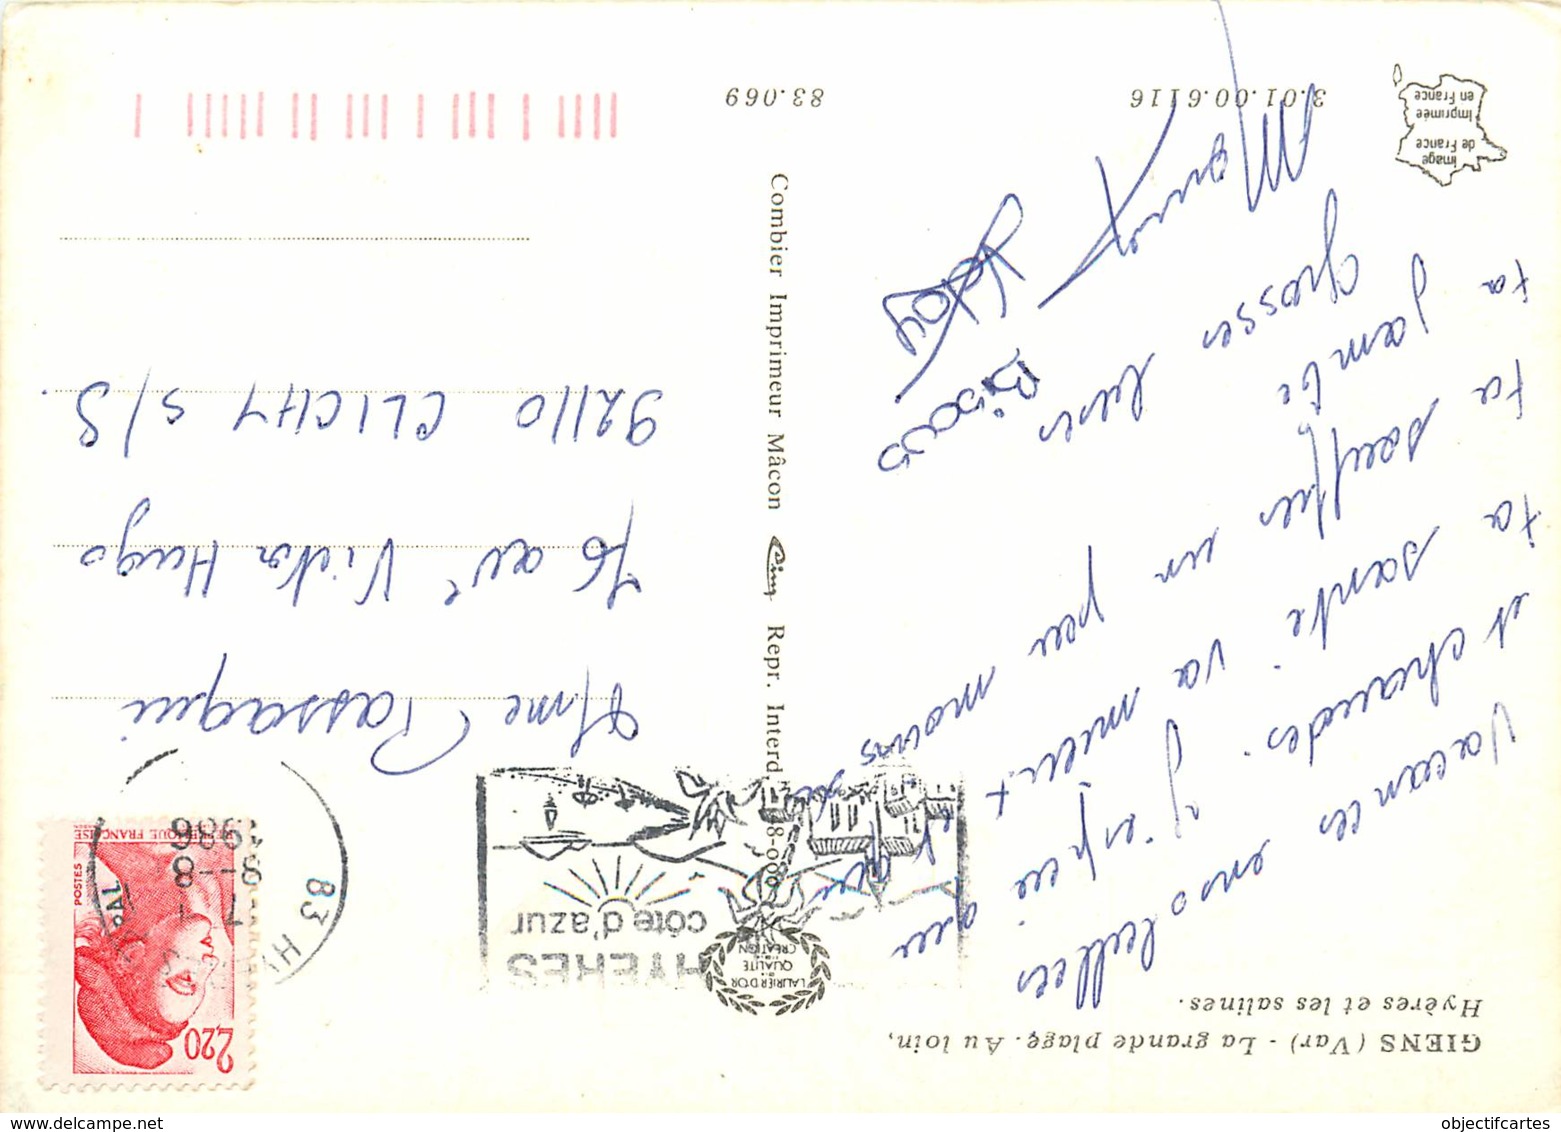 GIENS (Var) - La grande plage. Au loin,
Hyères et les salines.
Vacances ensoleillées
et chaudes. J'espère que
ta santé va mieux et que
ta souffres un peu moins
ta jambe
Grosses bises
Bisous
Mme Passaqui
76 av. Victor Hugo
92110 CLICHY S/S.
Combier Imprimeur Mâcon Cim Repr. Interd.
LAURIER D'OR
QUALITÉ
CRÉATION
HYERES
côte d'azur
83 HY
17
8--8
1986
2,20
POSTES
RÉPUBLIQUE FRANÇAISE
3.01.00.6116
83.069
image
de France
Imprimée
en France
objectifcartes